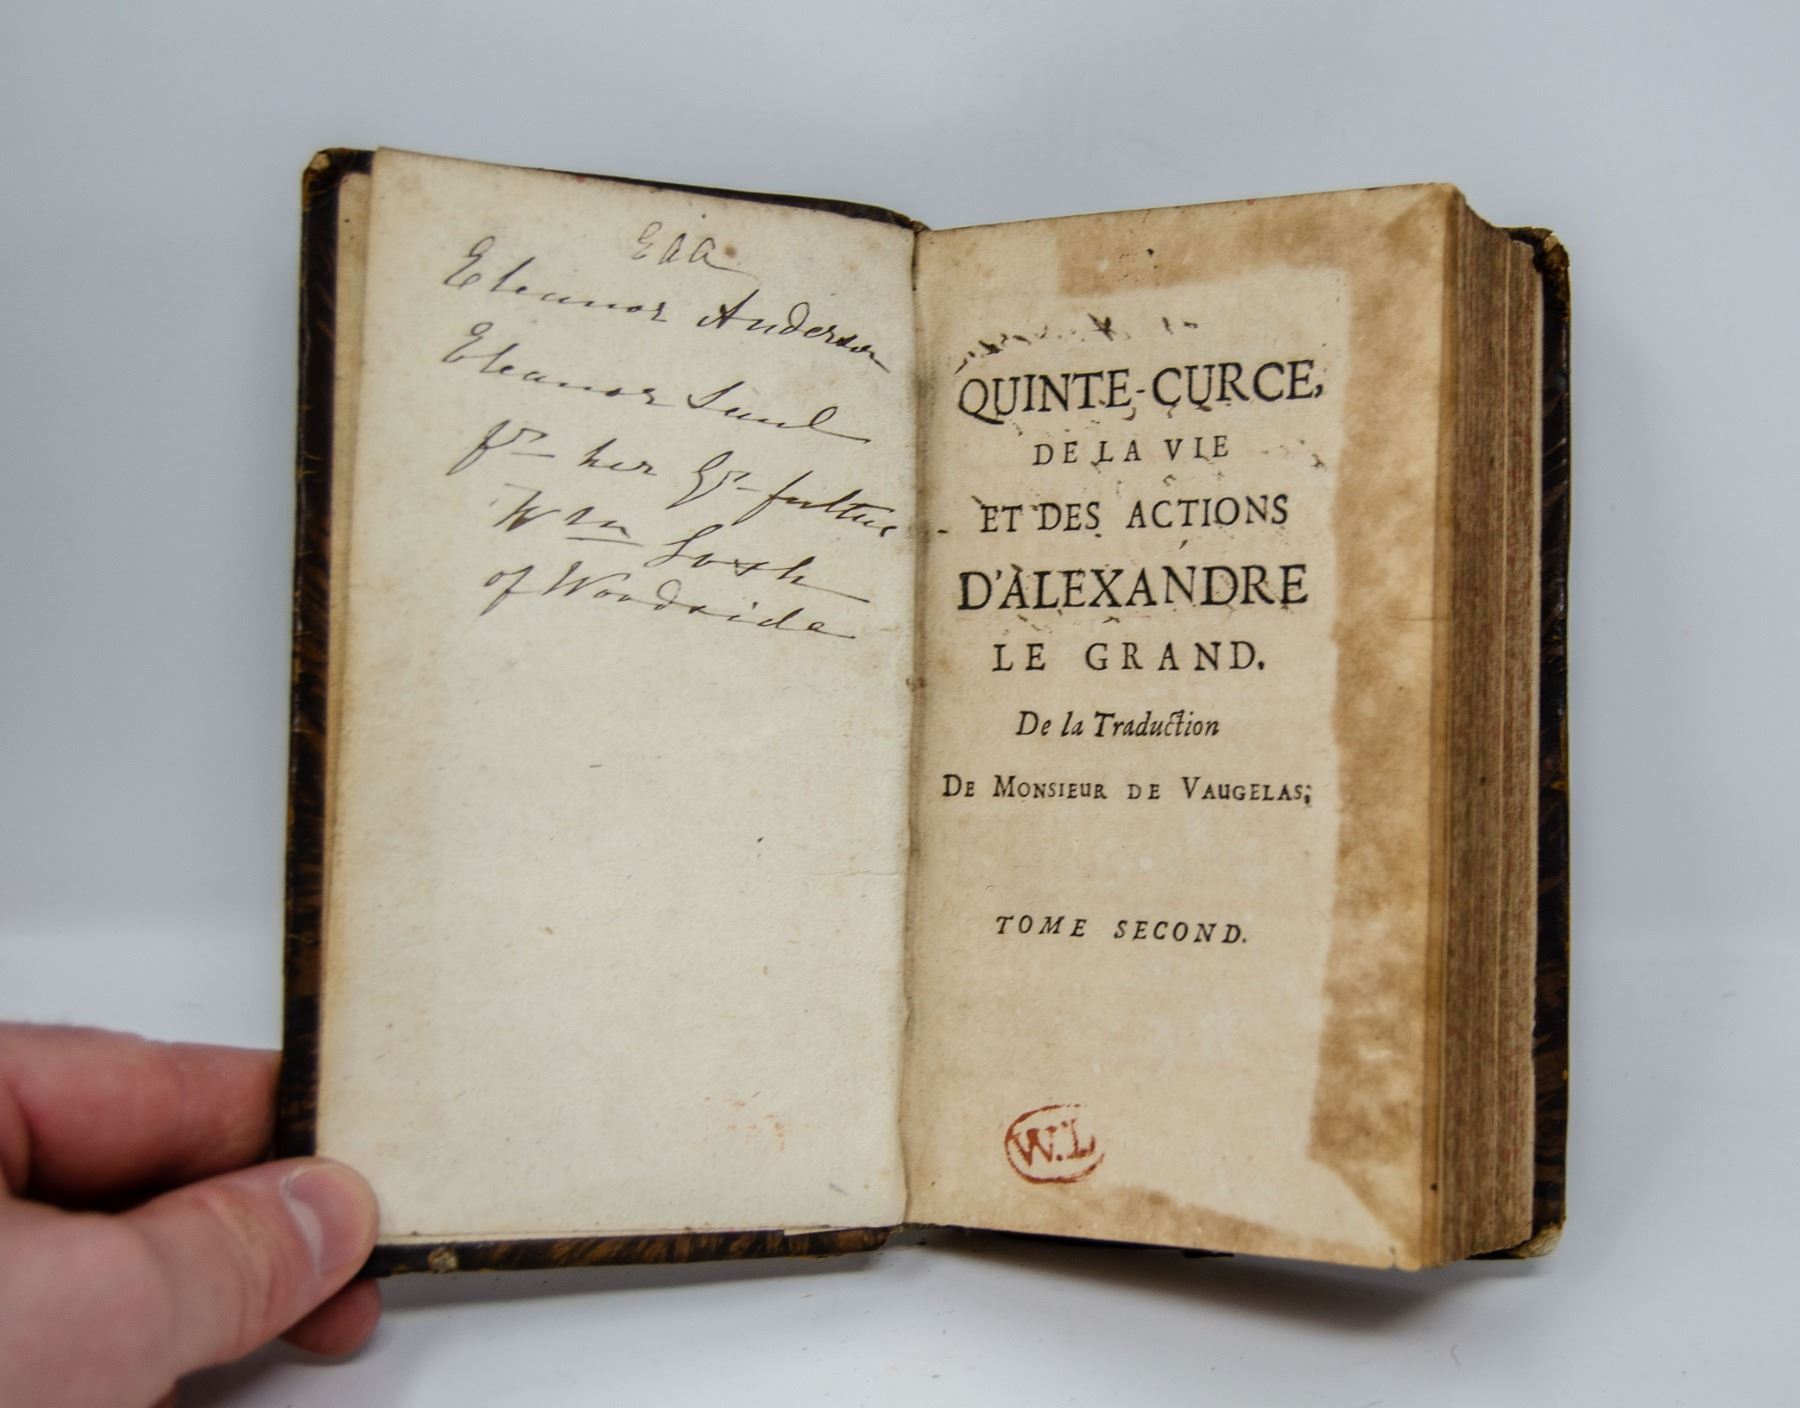 EAA
Eleanor Anderson
Eleanor
fr her Gr father
Wm Losh
of Woodside
QUINTE-CURCE,
DE LA VIE
ET DES ACTIONS
D'ALEXANDRE
LE GRAND.
De la Traduction
DE MONSIEUR DE VAUGELAS;
TOME SECOND.
W.L